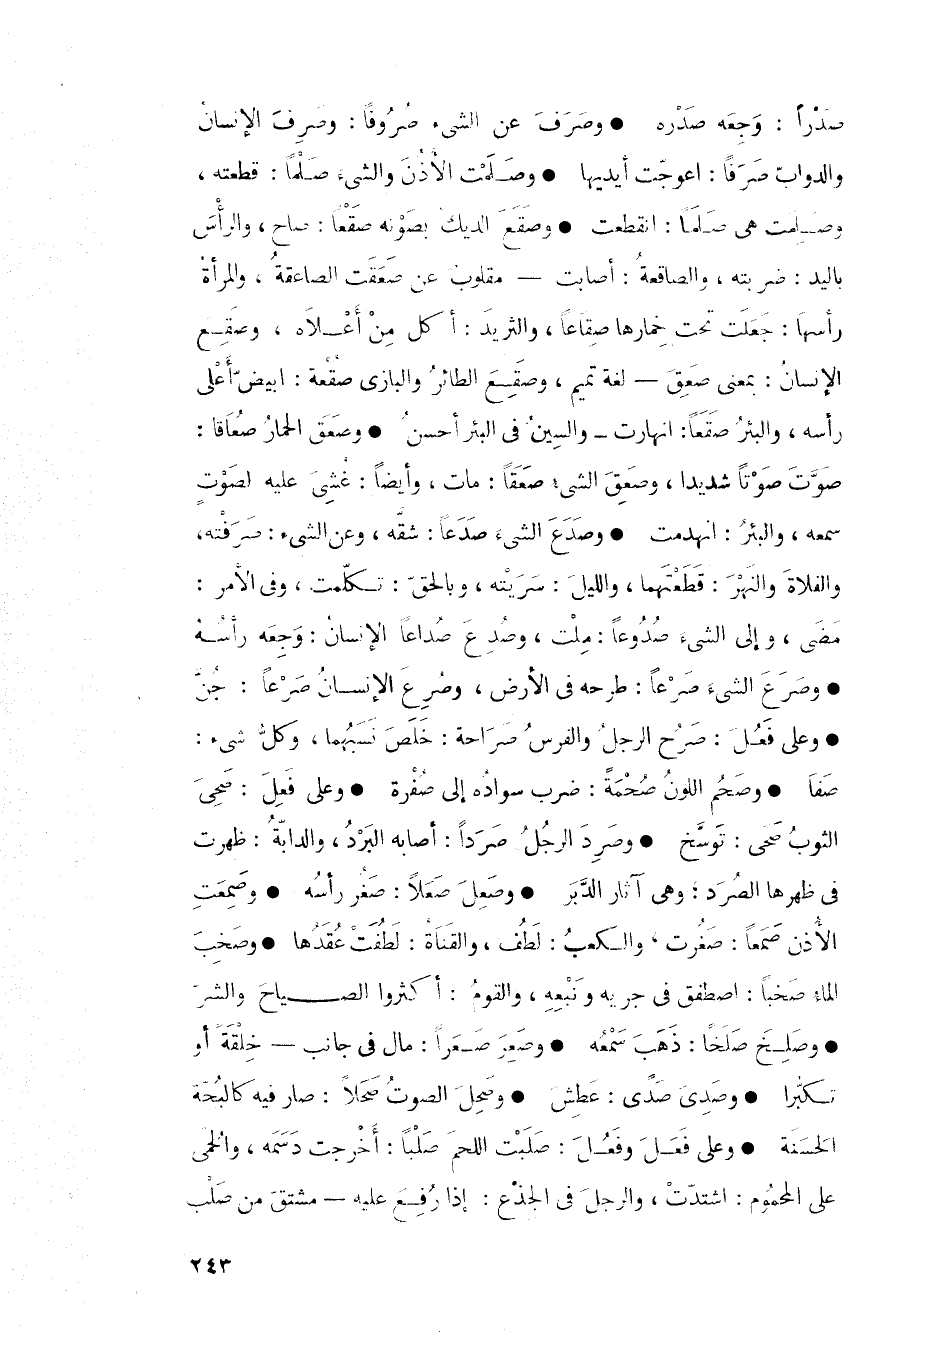 صَدْراً : وَجِعَه صَدْره ● وصَرَفَ عن الشىء صُرُوفًا : وصَرِفَ الإنسانُ
والدوابّ صَرَفًا : اعوجّت أيديها ● وصَلَمْت الأذُنَ والشىءَ صَلْماً : قطعته ،
وصَلِمت هى صَلَمًا : انقطعت ● وصَقَعَ الديكُ بصَوْته صَقْعًا : صاح ، والرأْسَ
باليد : ضربته ، والصاقعةُ : أصابت — مقلوبٌ عن صَعَقَت الصاعقةُ ، والمرأةُ
رأسها : جَعَلَت تحت خِمارها صِقَاعاً ، والثريدَ : أكل مِنْ أَعْلاَه ، وصَقِع
الإنسانُ : بمعنى صَعِقَ — لغة تميم ، وصَقِعَ الطائرُ والبازى صُقْعة : ابيضّ أَعْلى
رأسه ، والبئرُ صَقَعَاً : انهارت – والسينُ فى البئر أحسنُ ● وصَعَق الحمارُ صُعَاقا :
صَوَّتَ صَوْتاً شديدا ، وصَعِقَ الشىءُ صَعَقاً : مات ، وأيضاً : غُشِىَ عليه لصَوْتٍ
سمعه ، والبئرُ : انهدمت ● وصَدَعَ الشىءَ صَدَعاً : شقَّه ، وعن الشىء : صَرَفْته ،
والفلاةَ والنَهْرَ : قَطَعْتَهما ، والليلَ : سَرَيْته ، وبالحقّ : تكلّمت ، وفى الأمر :
مَضَى ، وإلى الشىءِ صُدُوعاً : مِلْت ، وصُدِعَ صُداعاً الإنسانُ : وَجِعَه رأسُه
● وصَرَعَ الشىءَ صَرْعاً : طرحه فى الأرض ، وصُرِعَ الإنسانُ صَرْعاً : جُنَّ
● وعلى فَعُلَ : صَرُح الرجلُ والفرسُ صَرَاحة : خَلَصَ نَسَبُهما ، وكلُّ شىء :
صَفَا ● وصَحُم اللونُ صُحْمَةً : ضرب سوادُه إلى صُفْرة ● وعلى فَعِلَ : صَخِىَ
الثوبُ صَخًى : تَوسَّخ ● وصَرِدَ الرجلُ صَرَداً : أصابه البَرْدُ ، والدابّةُ : ظهرت
فى ظهرها الصُرَد ؛ وهى آثار الدَّبَر ● وصَعِلَ صَعَلاً : صَغُر رأسُه ● وصَمِعَت
الأُذن صَمَعاً : صَغُرت ، والكعبُ : لَطُف ، والقناةُ : لَطُفَتْ عُقَدُها ● وصَخِبَ
الماءُ صَخَباً : اصطفق فى جريه ونَبْعِه ، والقومُ : أكثروا الصياحَ والشرّ
● وصَلِخَ صَلَخًا : ذَهَبَ سَمْعُه ● وصَعِرَ صَعَراً : مال فى جانب — خِلْقَةً أو
تكبّرا ● وصَدِىَ صَدًى : عَطِش ● وصَحِلَ الصوتُ صَحَلاً : صار فيه كالبُحّة
الحسَنة ● وعلى فَعَلَ وفَعُلَ : صَلَبْت اللحمَ صَلْباً : أَخْرجت دَسَمَه ، والحُمى
على المحمُوم : اشتدّتْ ، والرجلَ فى الجِذْع : إذا رُفِعَ عليه — مشتقّ من صَلْب
٢٤٣